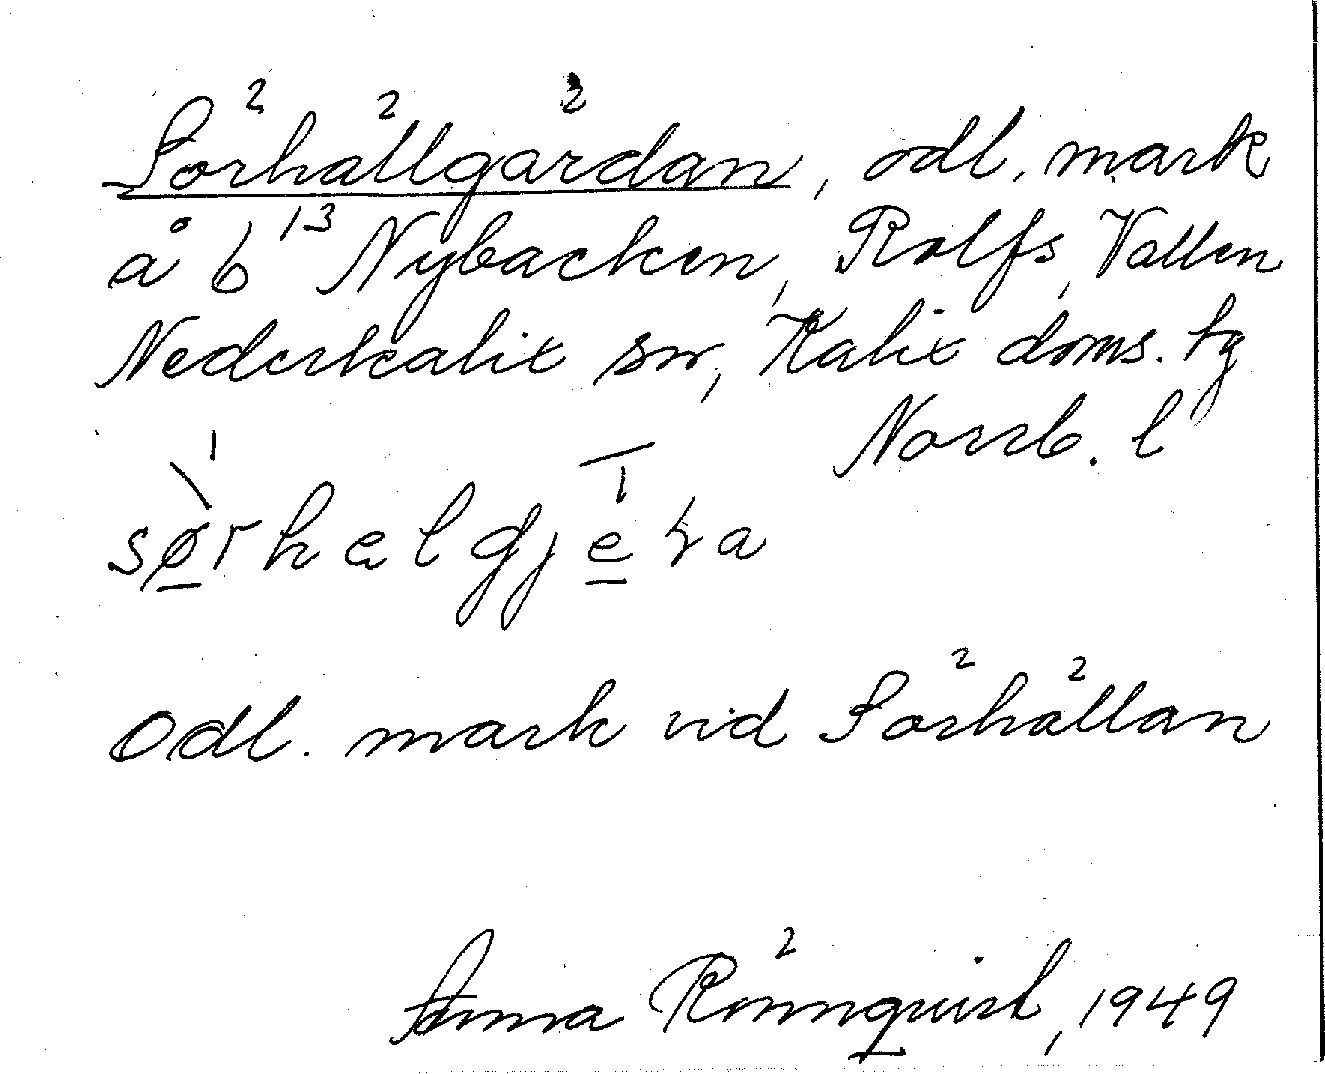 Sörhällgärdan, odl. mark
å 6¹³ Nybacken, Rolfs, Vallen
Nederkalix sn, Kalix doms. tg
Norrb. l
sørhælgjeṛa
Odl. mark vid Sörhällan
Anna Rönnquist, 1949